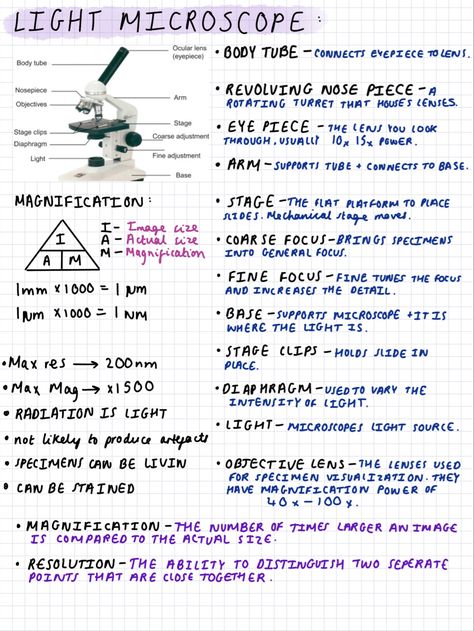 LIGHT MICROSCOPE :
Body tube
Nosepiece
Objectives
Stage clips
Diaphragm
Light
Ocular lens
(eyepiece)
Arm
Stage
Coarse adjustment
Fine adjustment
Base
• BODY TUBE – CONNECTS EYEPIECE TO LENS.
• REVOLVING NOSE PIECE – A
ROTATING TURRET THAT HOUSES LENSES.
• EYE PIECE – THE LENS YOU LOOK
THROUGH, USUALLY 10x 15x POWER.
• ARM – SUPPORTS TUBE + CONNECTS TO BASE.
MAGNIFICATION :
I
A M
I – Image size
A – Actual size
M – Magnification
1mm x1000 = 1 μm
1μm x1000 = 1 nM
• STAGE – THE FLAT PLATFORM TO PLACE
SLIDES. Mechanical stage moves.
• COARSE FOCUS – BRINGS SPECIMENS
INTO GENERAL FOCUS.
• FINE FOCUS – FINE TUNES THE FOCUS
AND INCREASES THE DETAIL.
• BASE – SUPPORTS MICROSCOPE + IT IS
WHERE THE LIGHT IS.
• STAGE CLIPS – HOLDS SLIDE IN
PLACE.
• DIAPHRAGM – USED TO VARY THE
INTENSITY OF LIGHT.
• LIGHT – MICROSCOPES LIGHT SOURCE.
• OBJECTIVE LENS – THE LENSES USED
FOR SPECIMEN VISUALIZATION. THEY
HAVE MAGNIFICATION POWER OF
40x – 100x.
• Max res → 200nm
• Max Mag → x1500
• RADIATION IS LIGHT
• not likely to produce artefacts
• SPECIMENS CAN BE LIVIN
• CAN BE STAINED
• MAGNIFICATION – THE NUMBER OF TIMES LARGER AN IMAGE
IS COMPARED TO THE ACTUAL SIZE.
• RESOLUTION – THE ABILITY TO DISTINGUISH TWO SEPERATE
POINTS THAT ARE CLOSE TOGETHER.